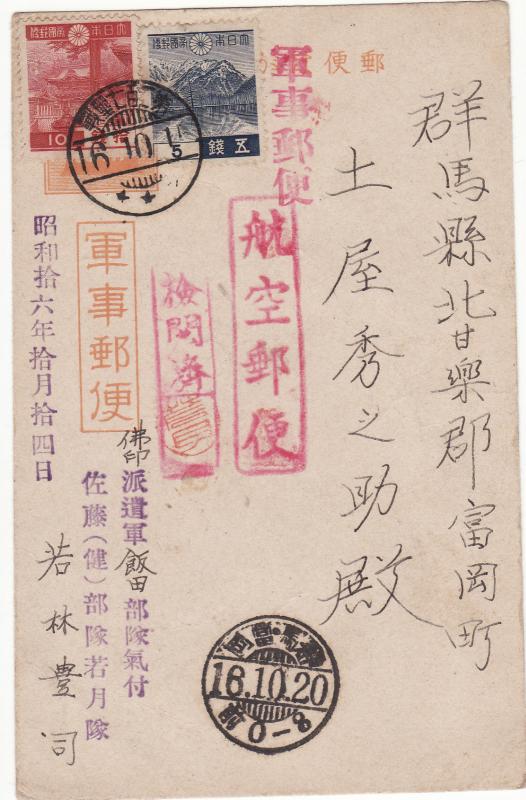 大日本帝國郵便
大日本帝國郵便
10
五錢
16.10.15
郵便
軍事郵便
航空郵便
檢閲濟
軍事郵便
群馬縣北甘樂郡富岡町
土屋秀之助殿
佛印派遣軍飯田部隊氣付
佐藤（健）部隊若月隊
若林豊司
昭和拾六年拾月拾四日
群馬・富岡
16.10.20
前0-8